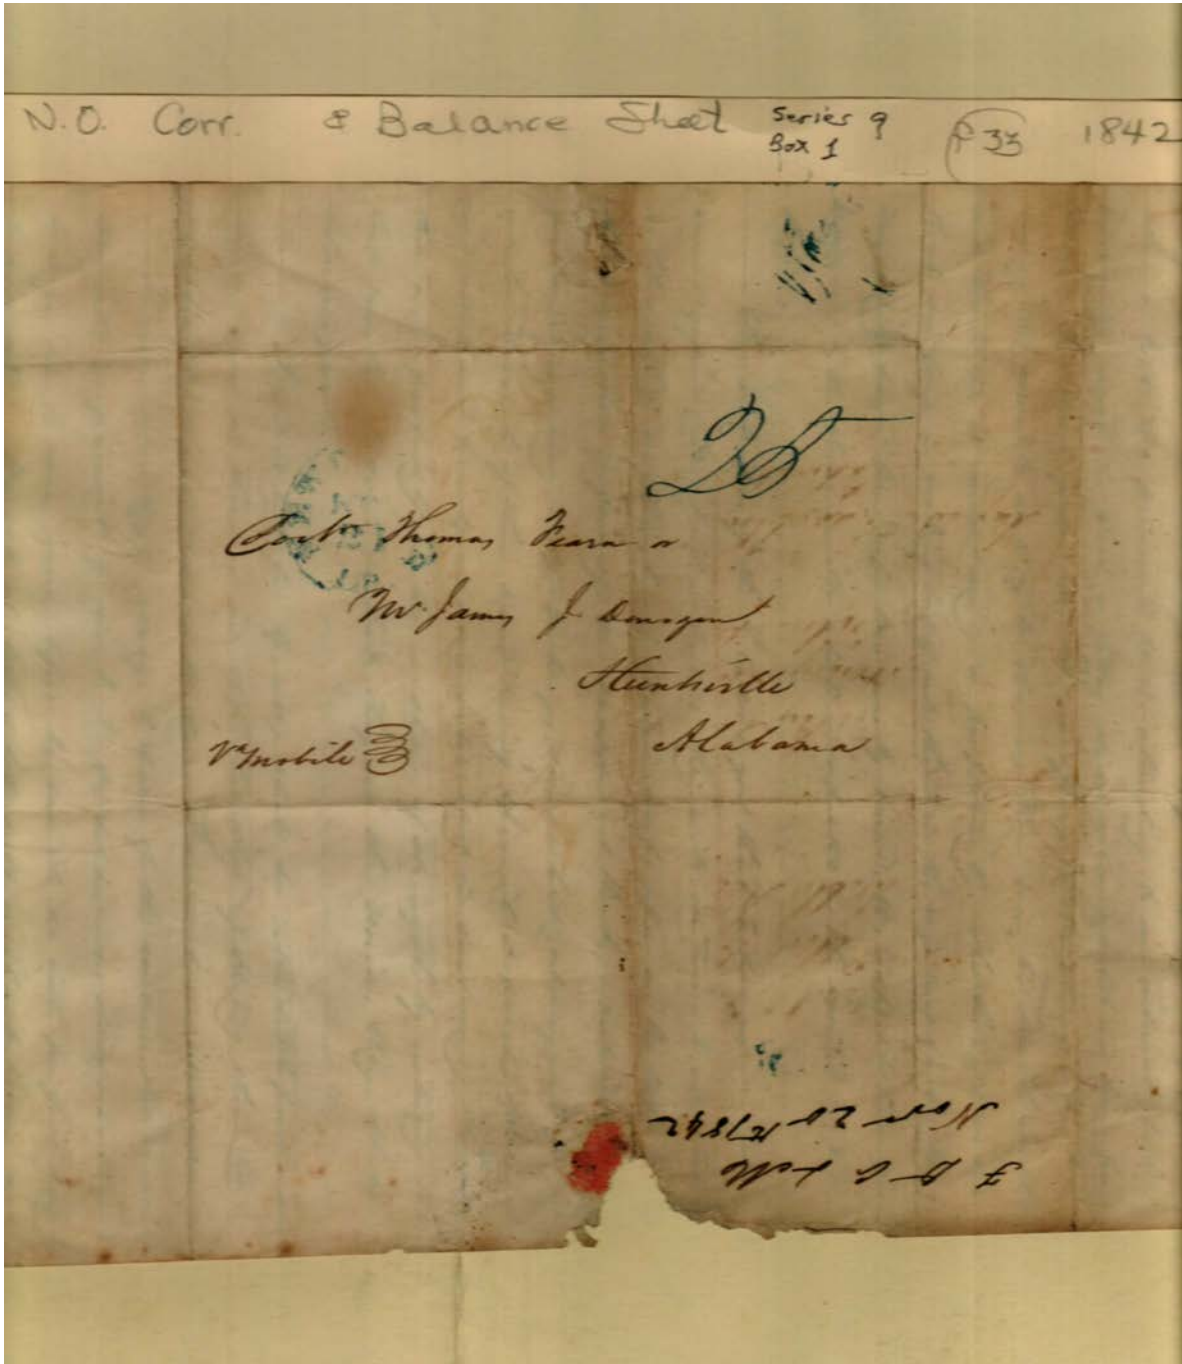 N.O. Corr. & Balance Sheet Series 9 F 33 1842
Box 1
25
Doctr Thomas Fearn or
Mr. James J Donegan
Huntsville
Alabama
Va Mobile
Novr 20th 1842